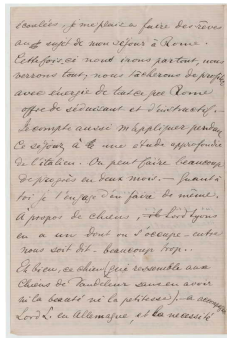 , je me plais à faire des rêves
au sujet de mon séjour à Rome.
Cette fois, ci nous irons partout, nous
verrons tout, nous tâcherons de profiter
avec énergie de tout ce que Rome
offre de séduisant et d'instructif.
Je compte aussi m'appliquer pendant
ce séjour à une étude approfondie
de l'italien. On peut faire beaucoup
de progrès en deux mois. — Quant à
toi je t'engage d'en faire de même.
À propos de chiens, Lord Lyons
en a un dont on s'occupe — entre
nous soit dit — beaucoup trop.
Eh bien, ce chien (qui ressemble aux
chiens de sans en avoir
ni la beauté ni la petitesse) a accompagné
Lord L. en Allemagne, et la nécessité